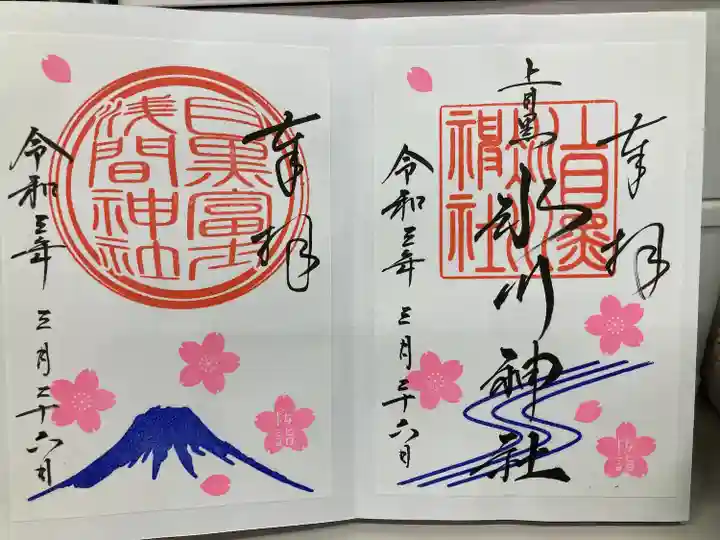 奉拝
上目黒
氷川神社
上目黒
氷川
神社
令和三年 三月二十六日
奉拝
目黒富士
浅間神社
令和三年 三月二十六日